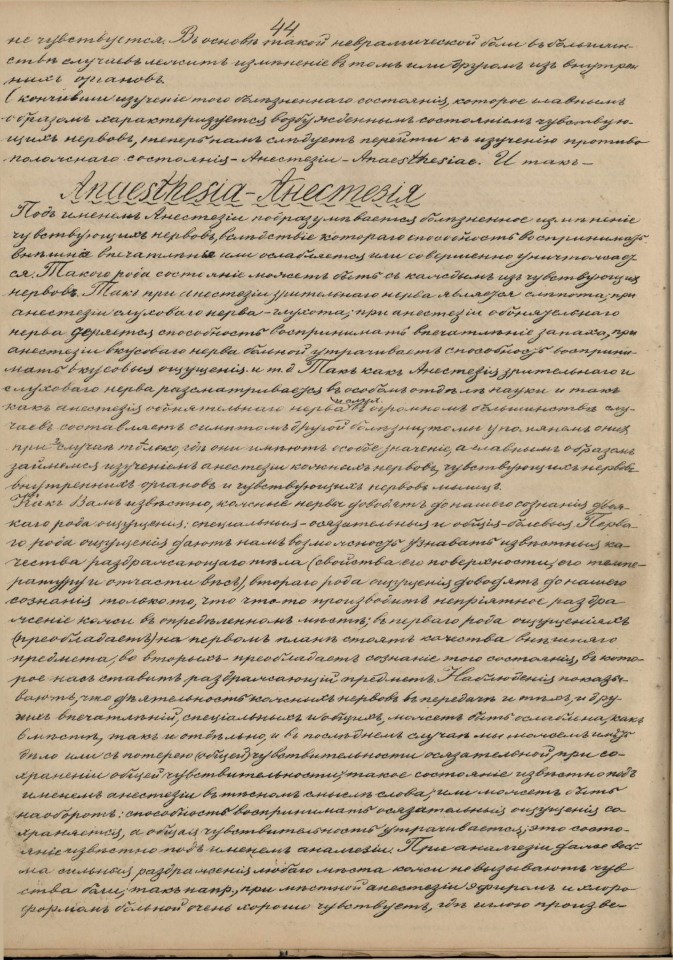 44
не чувствуется. Въ основѣ такой невралгической боли въ большин-
ствѣ случаевъ лежитъ измѣненіе въ томъ или другомъ изъ внутрен-
нихъ органовъ.
Окончивши изученіе того болѣзненнаго состоянія, которое главнымъ
образомъ характеризуется возбужденнымъ состояніемъ чувствую-
щихъ нервовъ, теперь намъ слѣдуетъ перейти къ изученію противо
положнаго состоянія - Анестезіи - Anaesthesiae. И такъ -
Anaesthesia - Анестезія
Подъ именемъ Анестезіи подразумѣвается болѣзненное измѣненіе
чувствующихъ нервовъ, вслѣдствіе котораго способность воспринимать
внѣшнія впечатлѣнія или ослабляется или совершенно уничтожает
ся. Такого рода состояніе можетъ быть съ каждымъ изъ чувствующихъ
нервовъ. Такъ при анестезіи зрительнаго нерва является слѣпота; при
анестезіи слуховаго нерва - глухота; при анестезіи обонятельнаго
нерва теряется способность воспринимать впечатлѣніе запаха, при
анестезіи вкусоваго нерва больной утрачиваетъ способность восприни-
мать вкусовыя ощущенія и т.д. Такъ какъ Анестезія зрительнаго и
слуховаго нерва разсматривается въ особомъ отдѣлѣ науки и такъ
какъ анестезія обонятельнаго нерва въ огромномъ большинствѣ слу-
чаевъ составляетъ симптомъ другой болѣзни, то мы упомянемъ о нихъ
при случаѣ только, гдѣ они имѣютъ особое значеніе, а главнымъ образомъ
займемся изученіемъ анестезіи кожныхъ нервовъ, чувствующихъ нервовъ
внутреннихъ органовъ и чувствующихъ нервовъ мышцъ.
Какъ Вамъ извѣстно, кожные нервы доводятъ до нашего сознанія двоя-
каго рода ощущенія: спеціальныя - осязательныя и общія - болевыя. Перва-
го рода ощущенія даютъ намъ возможность узнавать извѣстныя ка-
чества раздражающаго тѣла (свойства его поверхности, его темпе-
ратуру и отчасти вѣсъ), втораго рода ощущенія доводятъ до нашего
сознанія только то, что что-то производитъ непріятное раздра-
женіе кожи въ опредѣленномъ мѣстѣ; въ перваго рода ощущеніяхъ
(преобладаетъ) на первомъ планѣ стоятъ качества внѣшняго
предмета, во вторыхъ - преобладаетъ сознаніе того состоянія, въ кото-
рое насъ ставитъ раздражающій предметъ. Наблюденія показы-
ваютъ, что дѣятельность кожныхъ нервовъ въ передачѣ и тѣхъ, и дру-
гихъ впечатлѣній, спеціальныхъ и общихъ, можетъ быть ослаблена, какъ
вмѣстѣ, такъ и отдѣльно, и въ послѣднемъ случаѣ мы можемъ имѣть
дѣло или съ потерею (общей) чувствительности осязательной, при со-
храненіи общей чувствительности; такое состояніе извѣстно подъ
именемъ анестезіи въ тѣсномъ смыслѣ слова; или можетъ быть
наоборотъ: способность воспринимать осязательныя ощущенія со
храняется, а общая чувствительность утрачивается; это состо-
яніе извѣстно подъ именемъ аналгезіи. При аналгезіи даже весь
ма сильныя раздраженія любаго мѣста кожи не вызываютъ чув
ства боли; такъ напр., при мѣстной анестезіи эфиромъ и хлоро
формомъ больной очень хорошо чувствуетъ, гдѣ иглою произве-